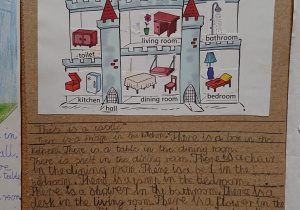 living room
bathroom
toilet
kitchen
hall
dining room
bedroom
This is a castle.
There is a fridge in the kitchen. There is a box in the
kitchen. There is a table in the dining room.
There is in the dining room. There is a chair
in the dining room. There is a bed in the
bedroom. There is a lamp in the bedroom.
There is a shower in the bathroom. There is a
desk in the living room. There is a flower in the